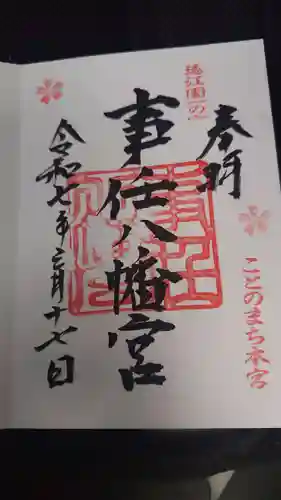 遠江國一の宮
奉拝
ことのまち本宮
事任八幡宮
令和七年三月十七日